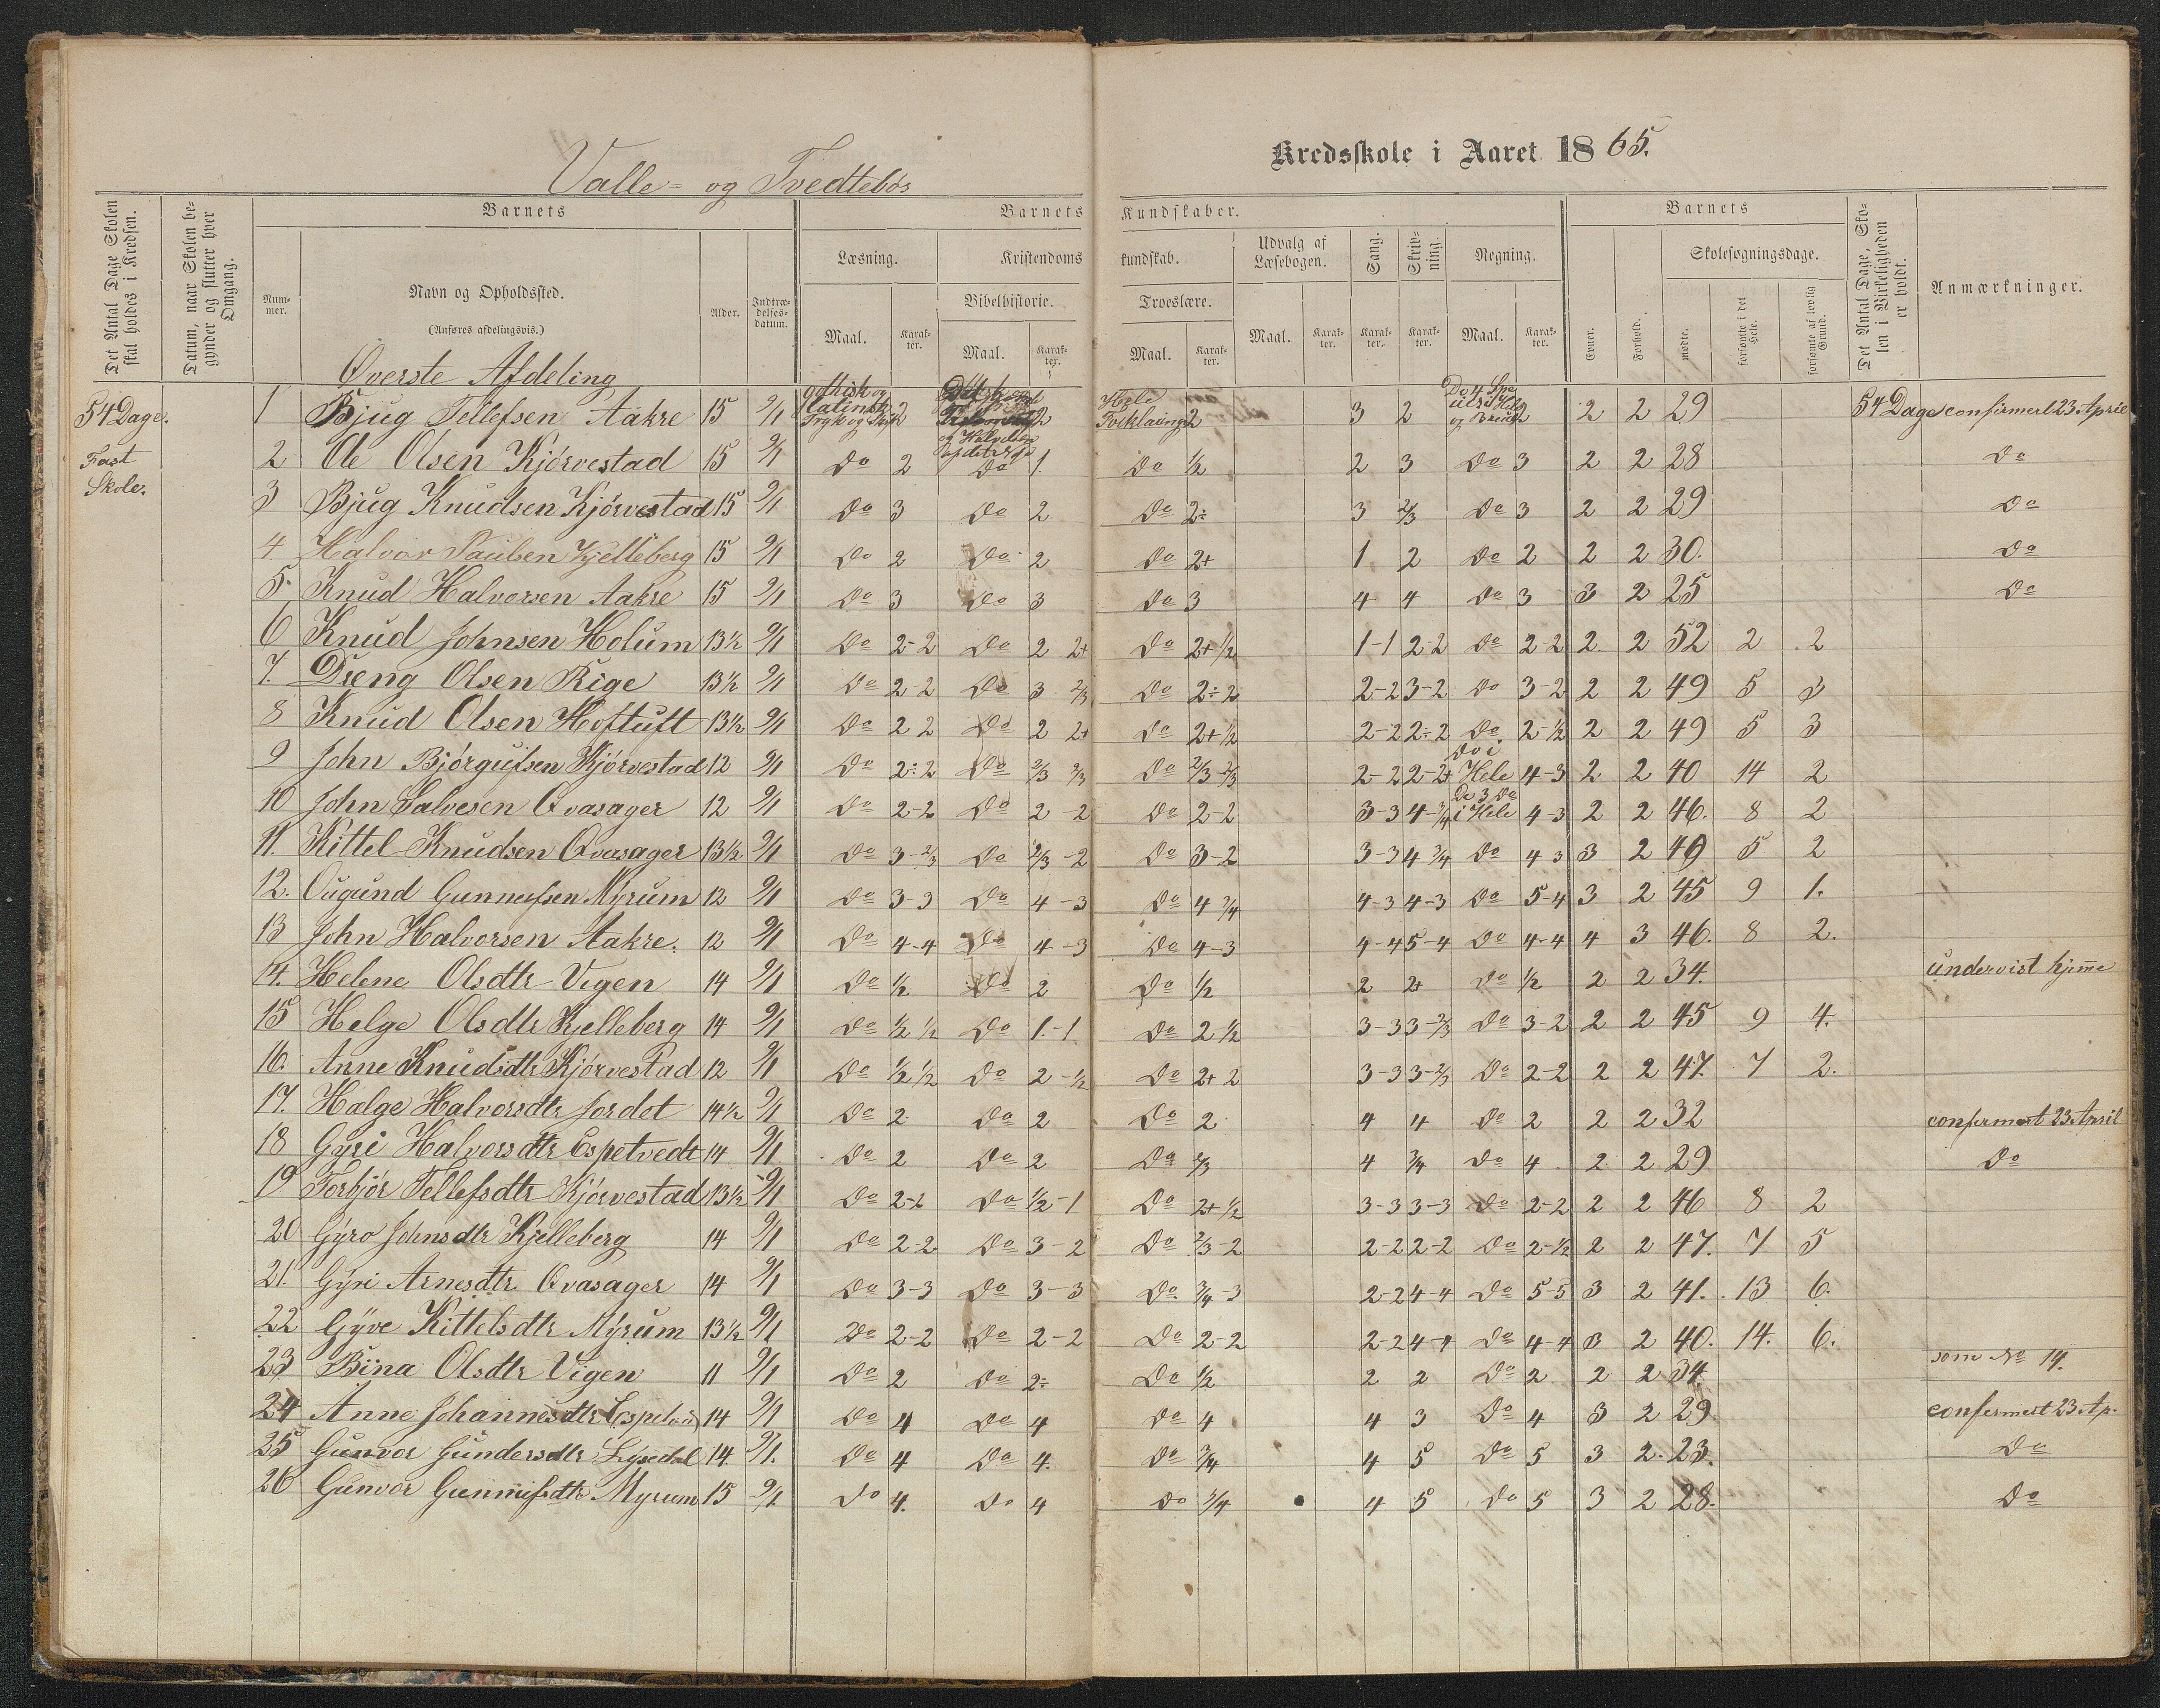 Valle- og Tvedtebøs
Kredsskole i Aaret 1865.
Det Antal Dage Skolen skal holdes i Kredsen.
Datum, naar Skolen begynder og slutter hver Omgang.
Barnets
Barnets Kundskaber.
Barnets
Det Antal Dage, Skolen i Virkeligheden er holdt.
Anmærkninger.
Nummer.
Navn og Opholdssted.
(Anføres afdelingsvis.)
Alder.
Indtrædelsesdatum.
Læsning.
Kristendomskundskab.
Udvalg af Læsebogen.
Sang.
Skrivning.
Regning.
Evner.
Forhold.
Skolesøgningsdage.
Bibelhistorie.
Troeslære.
mødte.
forsømte i det Hele.
forsømte af lovlig Grund.
Maal. Karakter. Maal. Karakter. Maal. Karakter. Maal. Karakter. Karakter. Karakter. Maal. Karakter.
Øverste Afdeling
54 Dage. 1 Bjug Tellefsen Aakre 15 9/1 gothisk og latinsk Tryk og Skr 2 2 Hele Forklaring 2 3 2 2 2 2 29 54 Dage confirmert 23 April
Fast Skole. 2 Ole Olsen Kjörvestad 15 9/1 Do 2 Do 1. Do 1/2 2 3 Do 3 2 2 28 Do
3 Bjug Knudsen Kjörvestad 15 9/1 Do 3 Do 2 Do 2÷ 3 2/3 Do 3 2 2 29 Do
4 Halvor Paulsen Kjelleberg 15 9/1 Do 2 Do 2 Do 2+ 1 2 Do 2 2 2 30. Do
5. Knud Halvorsen Aakre 15 9/1 Do 3 Do 3 Do 3 4 4 Do 3 3 2 25 Do
6 Knud Johnsen Holum 13½ 9/1 Do 2-2 Do 2 2+ Do 2+ 1/2 1-1 2-2 Do 2-2 2 2 52 2 2
7. Dreng Olsen Rige 13½ 9/1 Do 2-2 Do 3 2/3 Do 2÷2 2-2 3-2 Do 3-2 2 2 49 5 3
8 Knud Olsen Hoftuft 13½ 9/1 Do 2 2 Do 2 2+ Do 2+ 1/2 2-2 2÷2 Do 2-1/2 2 2 49 5 3
9 John Björgufsen Kjörvestad 12 9/1 Do 2÷2 Do 2/3 2/3 Do 2/3-2/3 2-2 2-2+ Do i Hele 4-3 2 2 40 14 2
10 John Salvesen Qvasager 12 9/1 Do 2-2 Do 2-2 Do 2-2 3-3 4-3/4 De 3 Do i Hele 4-3 2 2 46. 8 2
11. Kittel Knudsen Qvasager 13½ 9/1 Do 3-2/3 Do 2/3-2 Do 3-2 3-3 4 3/4 Do 4 3 3 2 49 5 2
12. Ougund Gunnufsen Myrum 12 9/1 Do 3-3 Do 4-3 Do 4 3/4 4-3 4-3 Do 5-4 3 2 45 9 1.
13 John Halvorsen Aakre. 12 9/1 Do 4-4 Do 4-3 Do 4-3 4-4 5-4 Do 4-4 4 3 46. 8 2.
14. Helene Olsdtr Vigen 14 9/1 Do 1/2 Do 2 Do 1/2 2 2+ Do 1/2 2 2 34. undervist hjemme
15 Helge Olsdtr Kjelleberg 14 9/1 Do 1/2 1/2 Do 1.-1 Do 2-1/2 3-3 3-2/3 Do 3-2 2 2 45 9 4.
16. Anne Knudsdtr Kjörvestad 12 9/1 Do 1/2 1/2 Do 2-1/2 Do 2+ 2 3-3 3-2/3 Do 2-2 2 2 47. 7 2.
17. Hælge Halvorsdtr Jordet 14½ 9/1 Do 2 Do 2 Do 2 4 4 Do 2 2 2 32 confirmert 23 April
18 Gyri Halvorsdtr Espetvedt 14 9/1 Do 2 Do 2 Do 2/3 4 3/4 Do 4 2 2 29 Do
19 Torbjör Tellefsdtr Kjörvestad 13½ 9/1 Do 2-2 Do 1/2-1 Do 2+ 1/2 3-3 3-3 Do 2-2 2 2 46 8 2
20 Gyro Johnsdtr Kjelleberg 14 9/1 Do 2-2 Do 3-2 Do 2/3-2 2-2 2-2 Do 2-1/2 2 2 47. 7 5
21. Gyri Arnesdtr Qvasager 14 9/1 Do 3-3 Do 3-3 Do 3/4-3 2-2 4-4 Do 5-5 3 2 41. 13 6.
22 Gyve Kittelsdtr Myrum 13½ 9/1 Do 2-2 Do 2-2 Do 2-2 2-2 4-4 Do 4-4 3 2 40. 14. 6.
23 Bina Olsdtr Vigen 11 9/1 Do 2 Do 2÷ Do 1/2 2 2 Do 2 2 2 34. som No 14.
24 Anne Johannesdtr 14 9/1 Do 4 Do 4 Do 4 4 3 Do 4 3 2 29 confermert 23 Ap.
25 Gunvor Gundersdtr Lysedal 14. 9/1. Do 4 Do 4. Do 3/4 4 5 Do 5 3 2. 23. Do
26 Gunvor Gunnufsdtr Myrum 15 9/1 Do 4. Do 4 Do 3/4 4 5 Do 5 3 2 28. Do